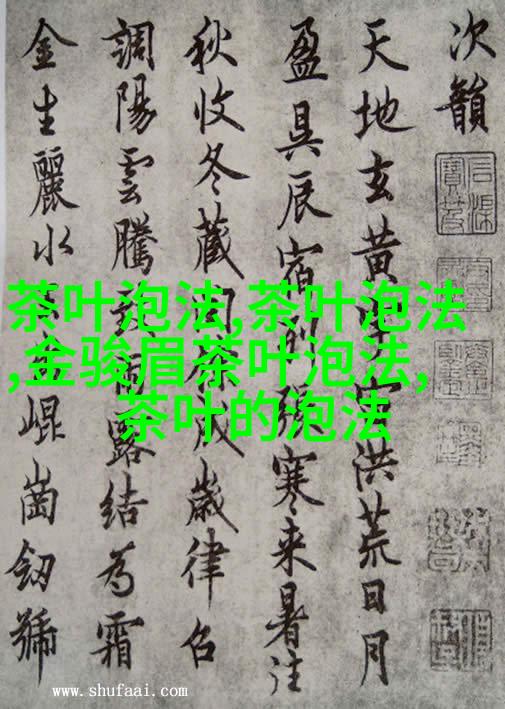 次韻
天地玄黄洪荒日月
盈昃辰宿列張寒来暑往
秋收冬藏閏成歲律召
調陽雲騰露結為霜
金生麗水崐崗號
茶叶泡法,茶叶泡法
,金骏眉茶叶泡法,
茶叶的泡法
www.shufaai.com